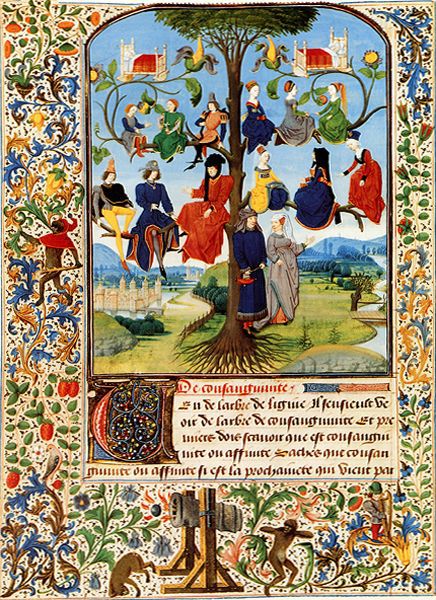 De consanguinite
Veu de larbre de lignie Il sensieust Ve
oir de larbre de consanguinite Et pre
miere doit scauoir que est consangui
nite ou affinite Sachez que consan
guinite ou affinite si est la prochainete qui vient par